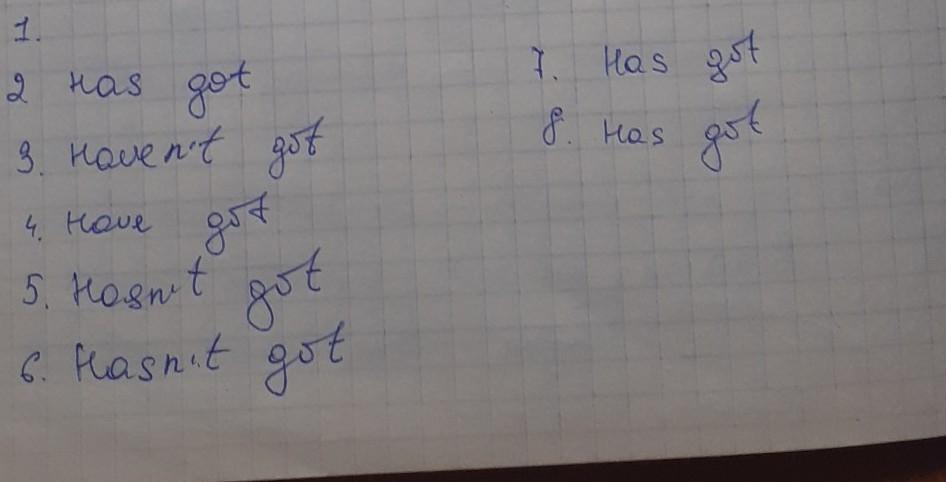 1.
2 Has got
3. Haven't got
4. Have got
5. Hasn't got
6. Hasn't got
7. Has got
8. Has got